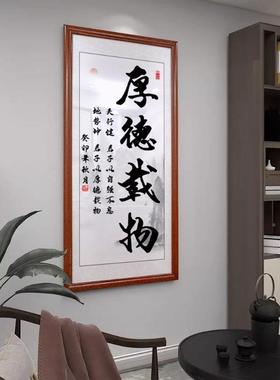 厚德載物
天行健 君子以自强不息
地势坤 君子以厚德载物
癸卯年秋月